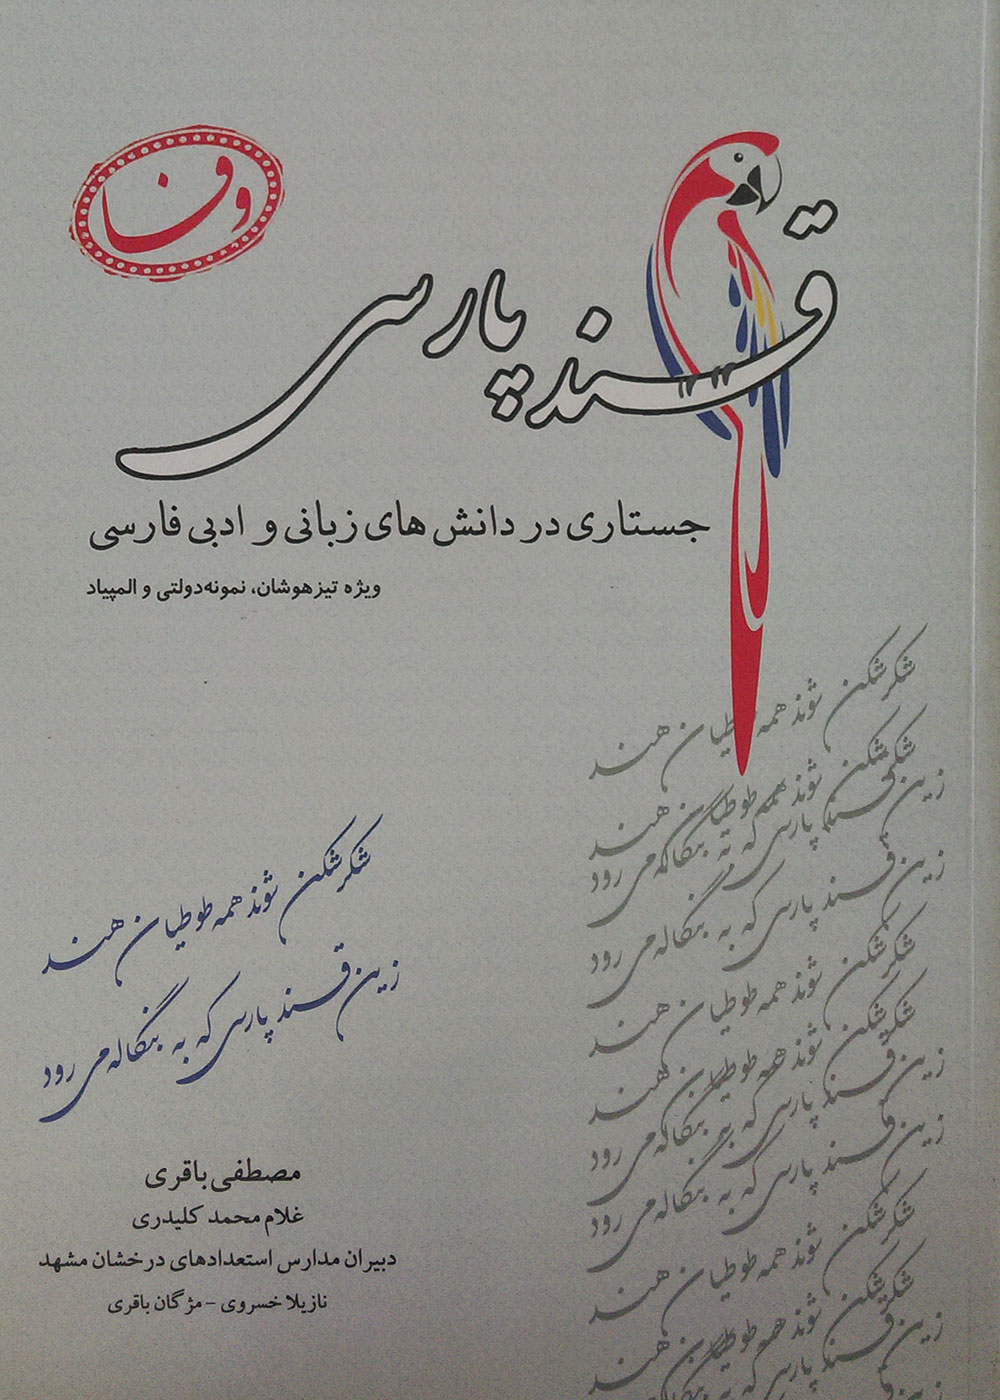 وفا
قند پارسی
جستاری در دانش های زبانی و ادبی فارسی
ویژه تیزهوشان، نمونه‌دولتی و المپیاد
شکرشکن شوند همه طوطیان هند
شکرشکن شوند همه طوطیان هند
زین قند پارسی که به بنگاله می رود
زین قند پارسی که به بنگاله می رود
شکرشکن شوند همه طوطیان هند
شکرشکن شوند همه طوطیان هند
زین قند پارسی که به بنگاله می رود
زین قند پارسی که به بنگاله می رود
شکرشکن شوند همه طوطیان هند
شکرشکن شوند همه طوطیان هند
زین قند پارسی که به
شکرشکن شوند همه طوطیان هند
زین قند پارسی که به بنگاله می رود
مصطفی باقری
غلام محمد کلیدری
دبیران مدارس استعدادهای درخشان مشهد
نازیلا خسروی - مژگان باقری